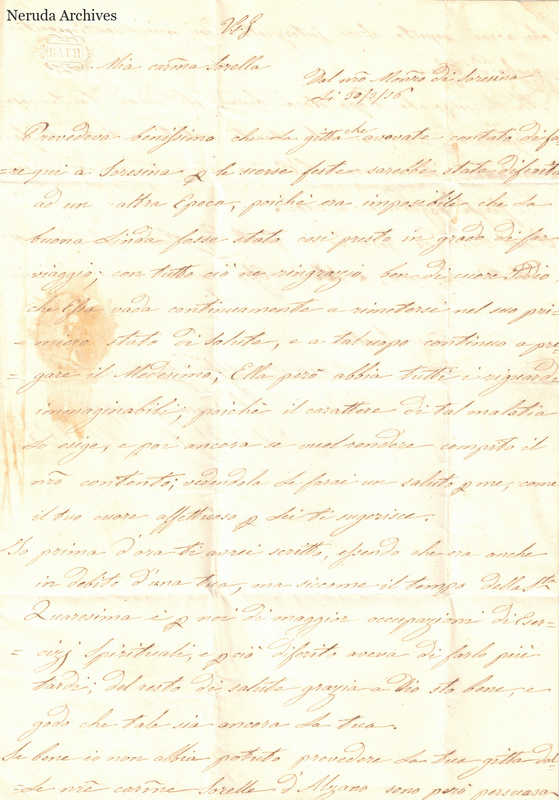 Neruda Archives
V. G.
BATH
Mia carma Sorella
Dal nro Monro di Soresina
Li 30/3/56
Prevedeva benissimo che la gitta che avevate contato di fa
=re qui a Soresina p le scorse feste sarebbe stata diferita
ad un altra Epoca, poichè era imposibile che la
buona Linda fosse stata così presto in grado di far
viaggio; con tutto ciò ne ringrazio ben di cuore Iddio
che Essa vada continuamente a rimetersi nel suo pri
=miero stato di salute, e a tal uopo continuo a pre
=gare il Medesimo; Ella però abbia tutti i riguardi
immaginabili, poichè il carattere di tal malatia
lo esige, e poi ancora se vuol rendere compito il
nro contento; vedendola le farai un saluto p me, come
il tuo cuore affettuoso p Lei ti sugerisce.
Io prima d'ora ti avrei scritto, essendo che era anche
in debito d'una tua, ma siccome il tempo della Sta
Quaresima è p noi di maggior occupazioni di Eser-
=cizj Spirituali, e p ciò diferito aveva di farlo più
tardi; del resto di salute grazia a Dio sto bene, e
godo che tale sia ancora la tua.
Se bene io non abbia potuto prevedere la tua gitta dal
le nre carme Sorelle d'Alzano sono però persuasa